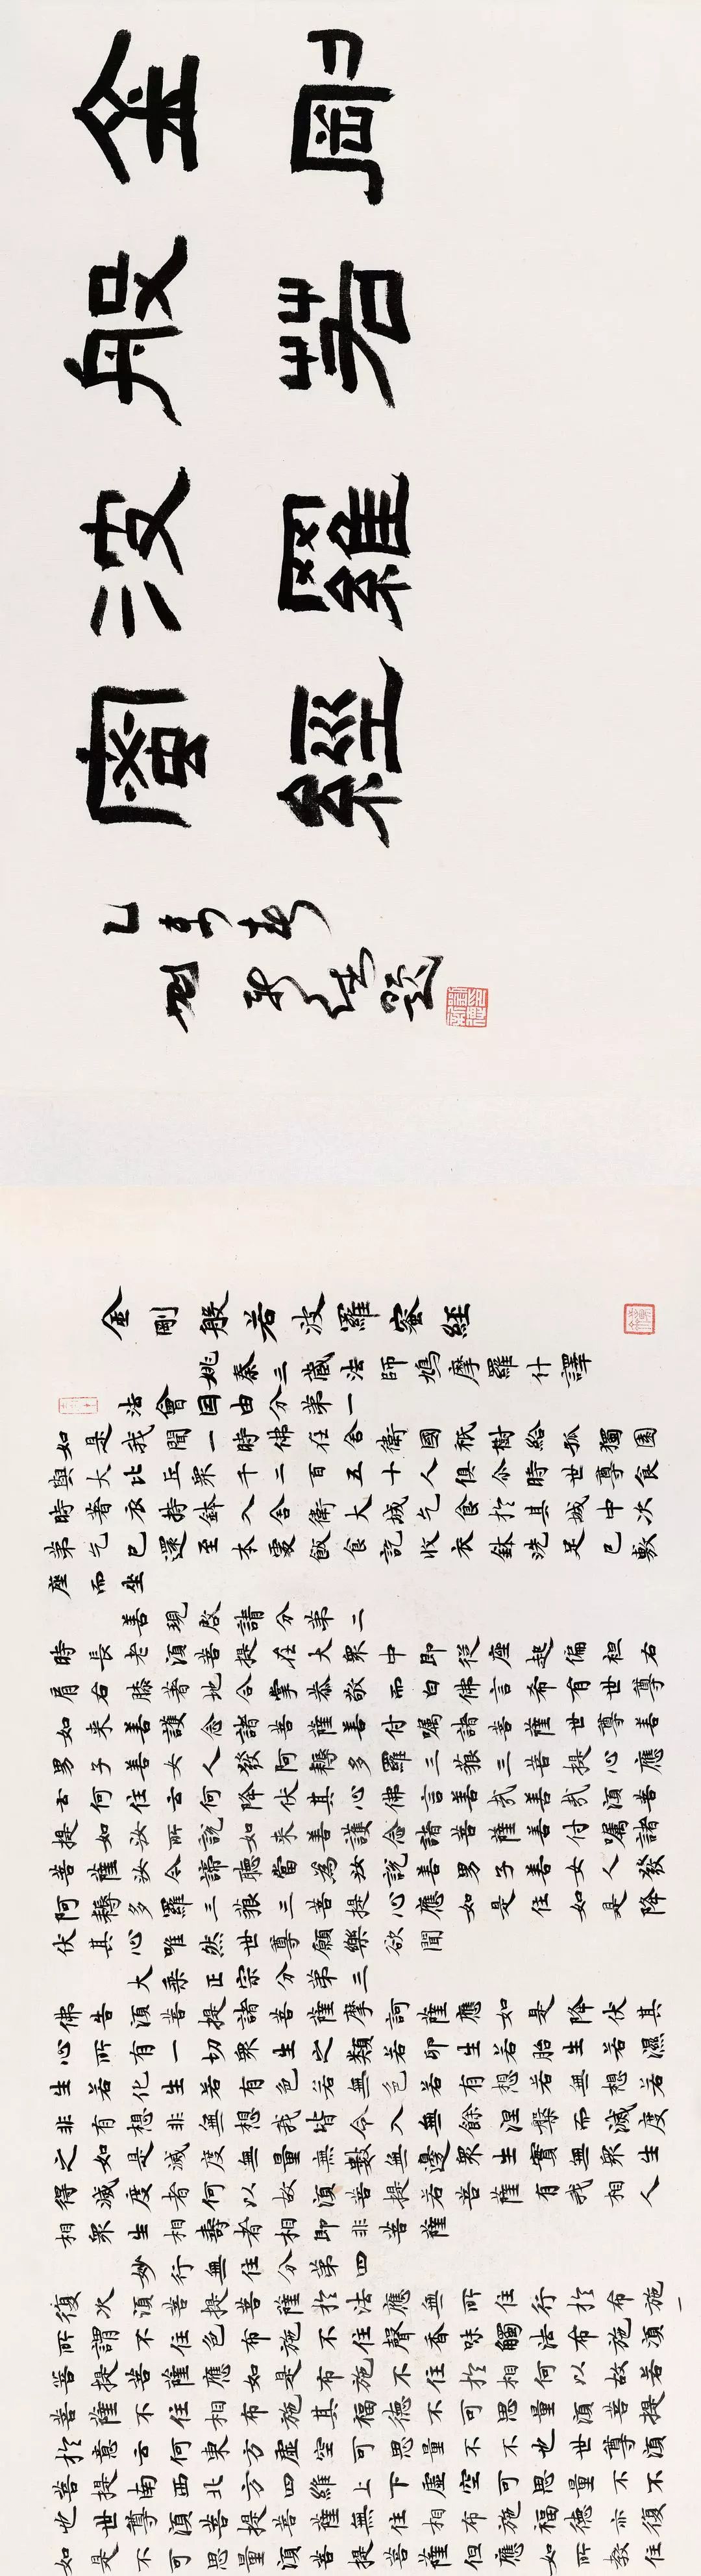 金剛
般若
波羅
蜜經
金剛般若波羅蜜經
姚秦三藏法師鳩摩羅什譯
法會因由分弟一
如是我聞一時佛在舍衛國祇樹給孤獨園
與大比丘衆千二百五十人俱尒時世尊食
時著衣持鉢入舍衛大城乞食於其城中次
弟乞已還至本處飯食訖收衣鉢洗足已敷
座而坐
善現啟請分弟二
時長老須菩提在大衆中即從座起偏袒右
肩右膝著地合掌恭敬而白佛言希有世尊
如来善護念諸菩薩善付嘱諸菩薩世尊善
男子善女人發阿耨多羅三藐三菩提心應
云何住云何降伏其心佛言善哉善哉須菩
提如汝所說如来善護念諸菩薩善付嘱諸
菩薩汝今諦聽當為汝說善男子善女人發
阿耨多羅三藐三菩提心應如是住如是降
伏其心唯然世尊願樂欲聞
大乘正宗分弟三
佛告須菩提諸菩薩摩訶薩應如是降伏其
心所有一切衆生之類若卵生若胎生若濕
生若化生若有色若無色若有想若無想若
非有想非無想我皆令入無餘涅槃而滅度
之如是滅度無量無數無邊衆生實無衆生
得滅度者何以故須菩提若菩薩有我相人
相衆生相壽者相即非菩薩
妙行無住分弟四
復次須菩提菩薩於法應無所住行於布施
所謂不住色布施不住聲香味觸法布施須
菩提菩薩應如是布施不住於相何以故若
菩薩不住相布施其福德不可思量須菩提
於意云何東方虛空可思量不不也世尊須
菩提南西北方四維上下虛空可思量不不
也世尊須菩提菩薩無住相布施福德亦復
如是不可思量須菩提菩薩但應如所教住